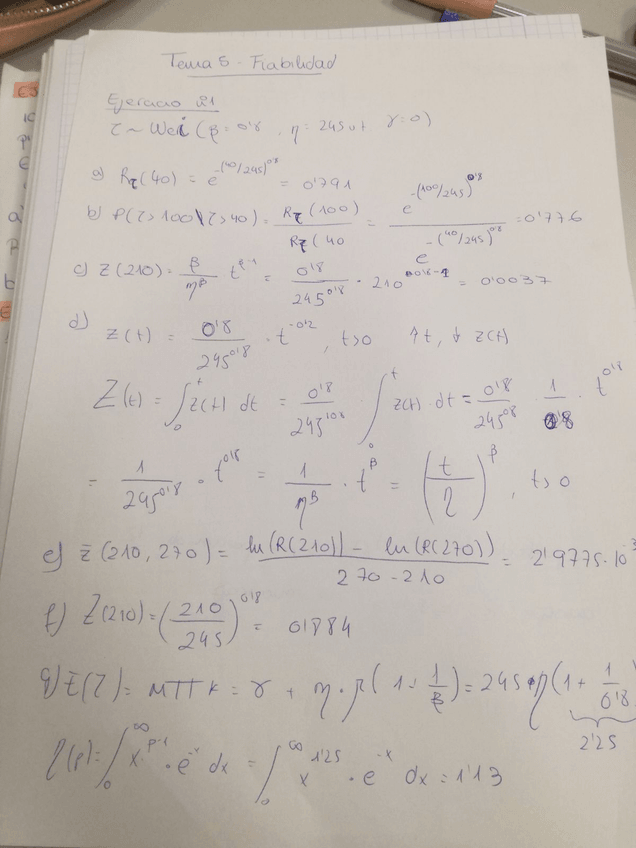 Tema 5 - Fiabilidad
Ejercicio 21
τ ~ Wei (β = 0'8, η = 245 ut γ = 0)
a) Rτ(40) = e^-(40/245)^0'8 = 0'791
b) P(τ>100 \ τ>40) = Rτ(100) / Rτ(40 = e^-(100/245)^0'8 / e^-(40/245)^0'8 = 0'776
c) z(210) = β/η^β t^β-1 = 0'8/245^0'8 · 210^0'8-1 = 0'0037
d) z(t) = 0'8/245^0'8 · t^-0'2, t>0 ↑t, ↓ z(t)
Z(t) = ∫₀^t z(t) dt = 0'8/245^0'8 ∫₀^t z(t) · dt = 0'8/245^0'8 · 1/0'8 · t^0'8
= 1/245^0'8 · t^0'8 = 1/η^β · t^β = (t/η)^β, t>0
e) z̄(210, 270) = ln(R(210)) - ln(R(270)) / 270-210 = 2'9775·10^-3
f) Z(210) = (210/245)^0'8 = 0'884
g) E(τ) = MTTF = γ + η · Γ(1 + 1/β) = 245 · Γ(1 + 1/0'8)
2'25
Γ(p) = ∫₀^∞ x^p-1 · e^-x dx = ∫₀^∞ x^1'25 · e^-x dx = 1'13